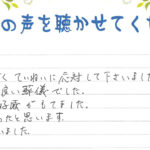 の声を聴かせてくだ
く ていねいに応対して下さいました
良い葬儀でした。
好感がもてました。
ったと思います
いました。